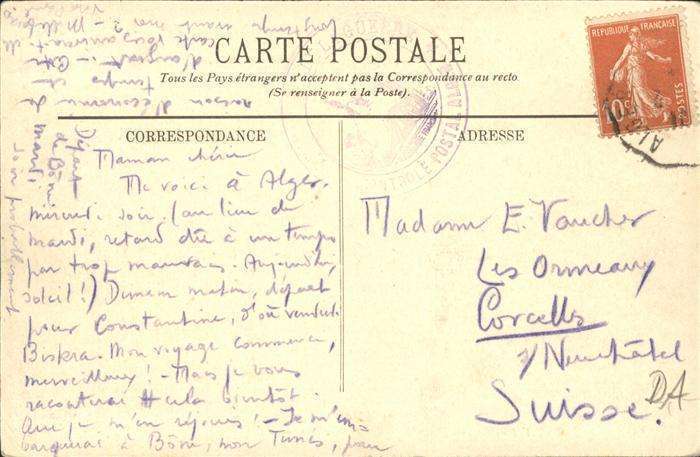 CARTE POSTALE
Tous les Pays étrangers n'acceptent pas la Correspondance au recto
(Se renseigner à la Poste).
CORRESPONDANCE
ADRESSE
RÉPUBLIQUE FRANÇAISE
10c
POSTA
AL
Maman chérie
Me voici à Alger.
mercredi soir. (au lieu de
mardi, retard dû à un temps
par trop mauvais. Aujourd'hui,
soleil!) Demain matin, départ
pour Constantine, d'où vendredi
Biskra. Mon voyage commence,
merveilleux! - Mais je vous
raconterai cela bientôt.
Que je m'en réjouis! - Je m'em-
barquerai à Bône, non Tunis, pour
raison d'économie de
temps et
d'argent. -
carte vous
avant moi? - Mille
longtemps
Départ
de Bône
mardi
soir probablement
Madame E. Vaucher
Les Ormeaux
Corcelles
s/ Neuchâtel
Suisse.
DA